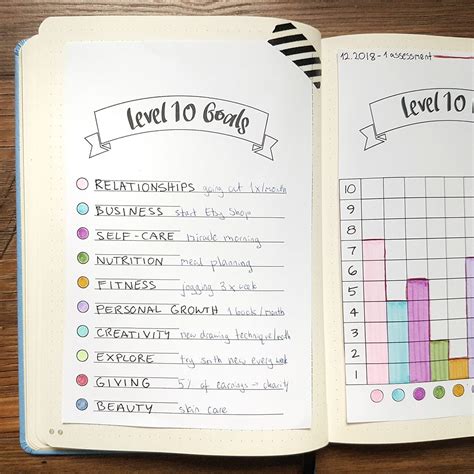 Level 10 Goals
RELATIONSHIPS going out 1x/month
BUSINESS start Etsy Shop
SELF-CARE miracle morning
NUTRITION meal planning
FITNESS jogging 3x week
PERSONAL GROWTH 1 book/month
CREATIVITY new drawing technique/month
EXPLORE try smth new every week
GIVING 5% of earnings → charity
BEAUTY skin care
12.2018 - 1 assessment
Level 10
10
9
8
7
6
5
4
3
2
1